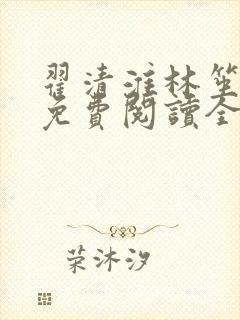 翟清淮林笙
免費閱讀全
荣沐汐